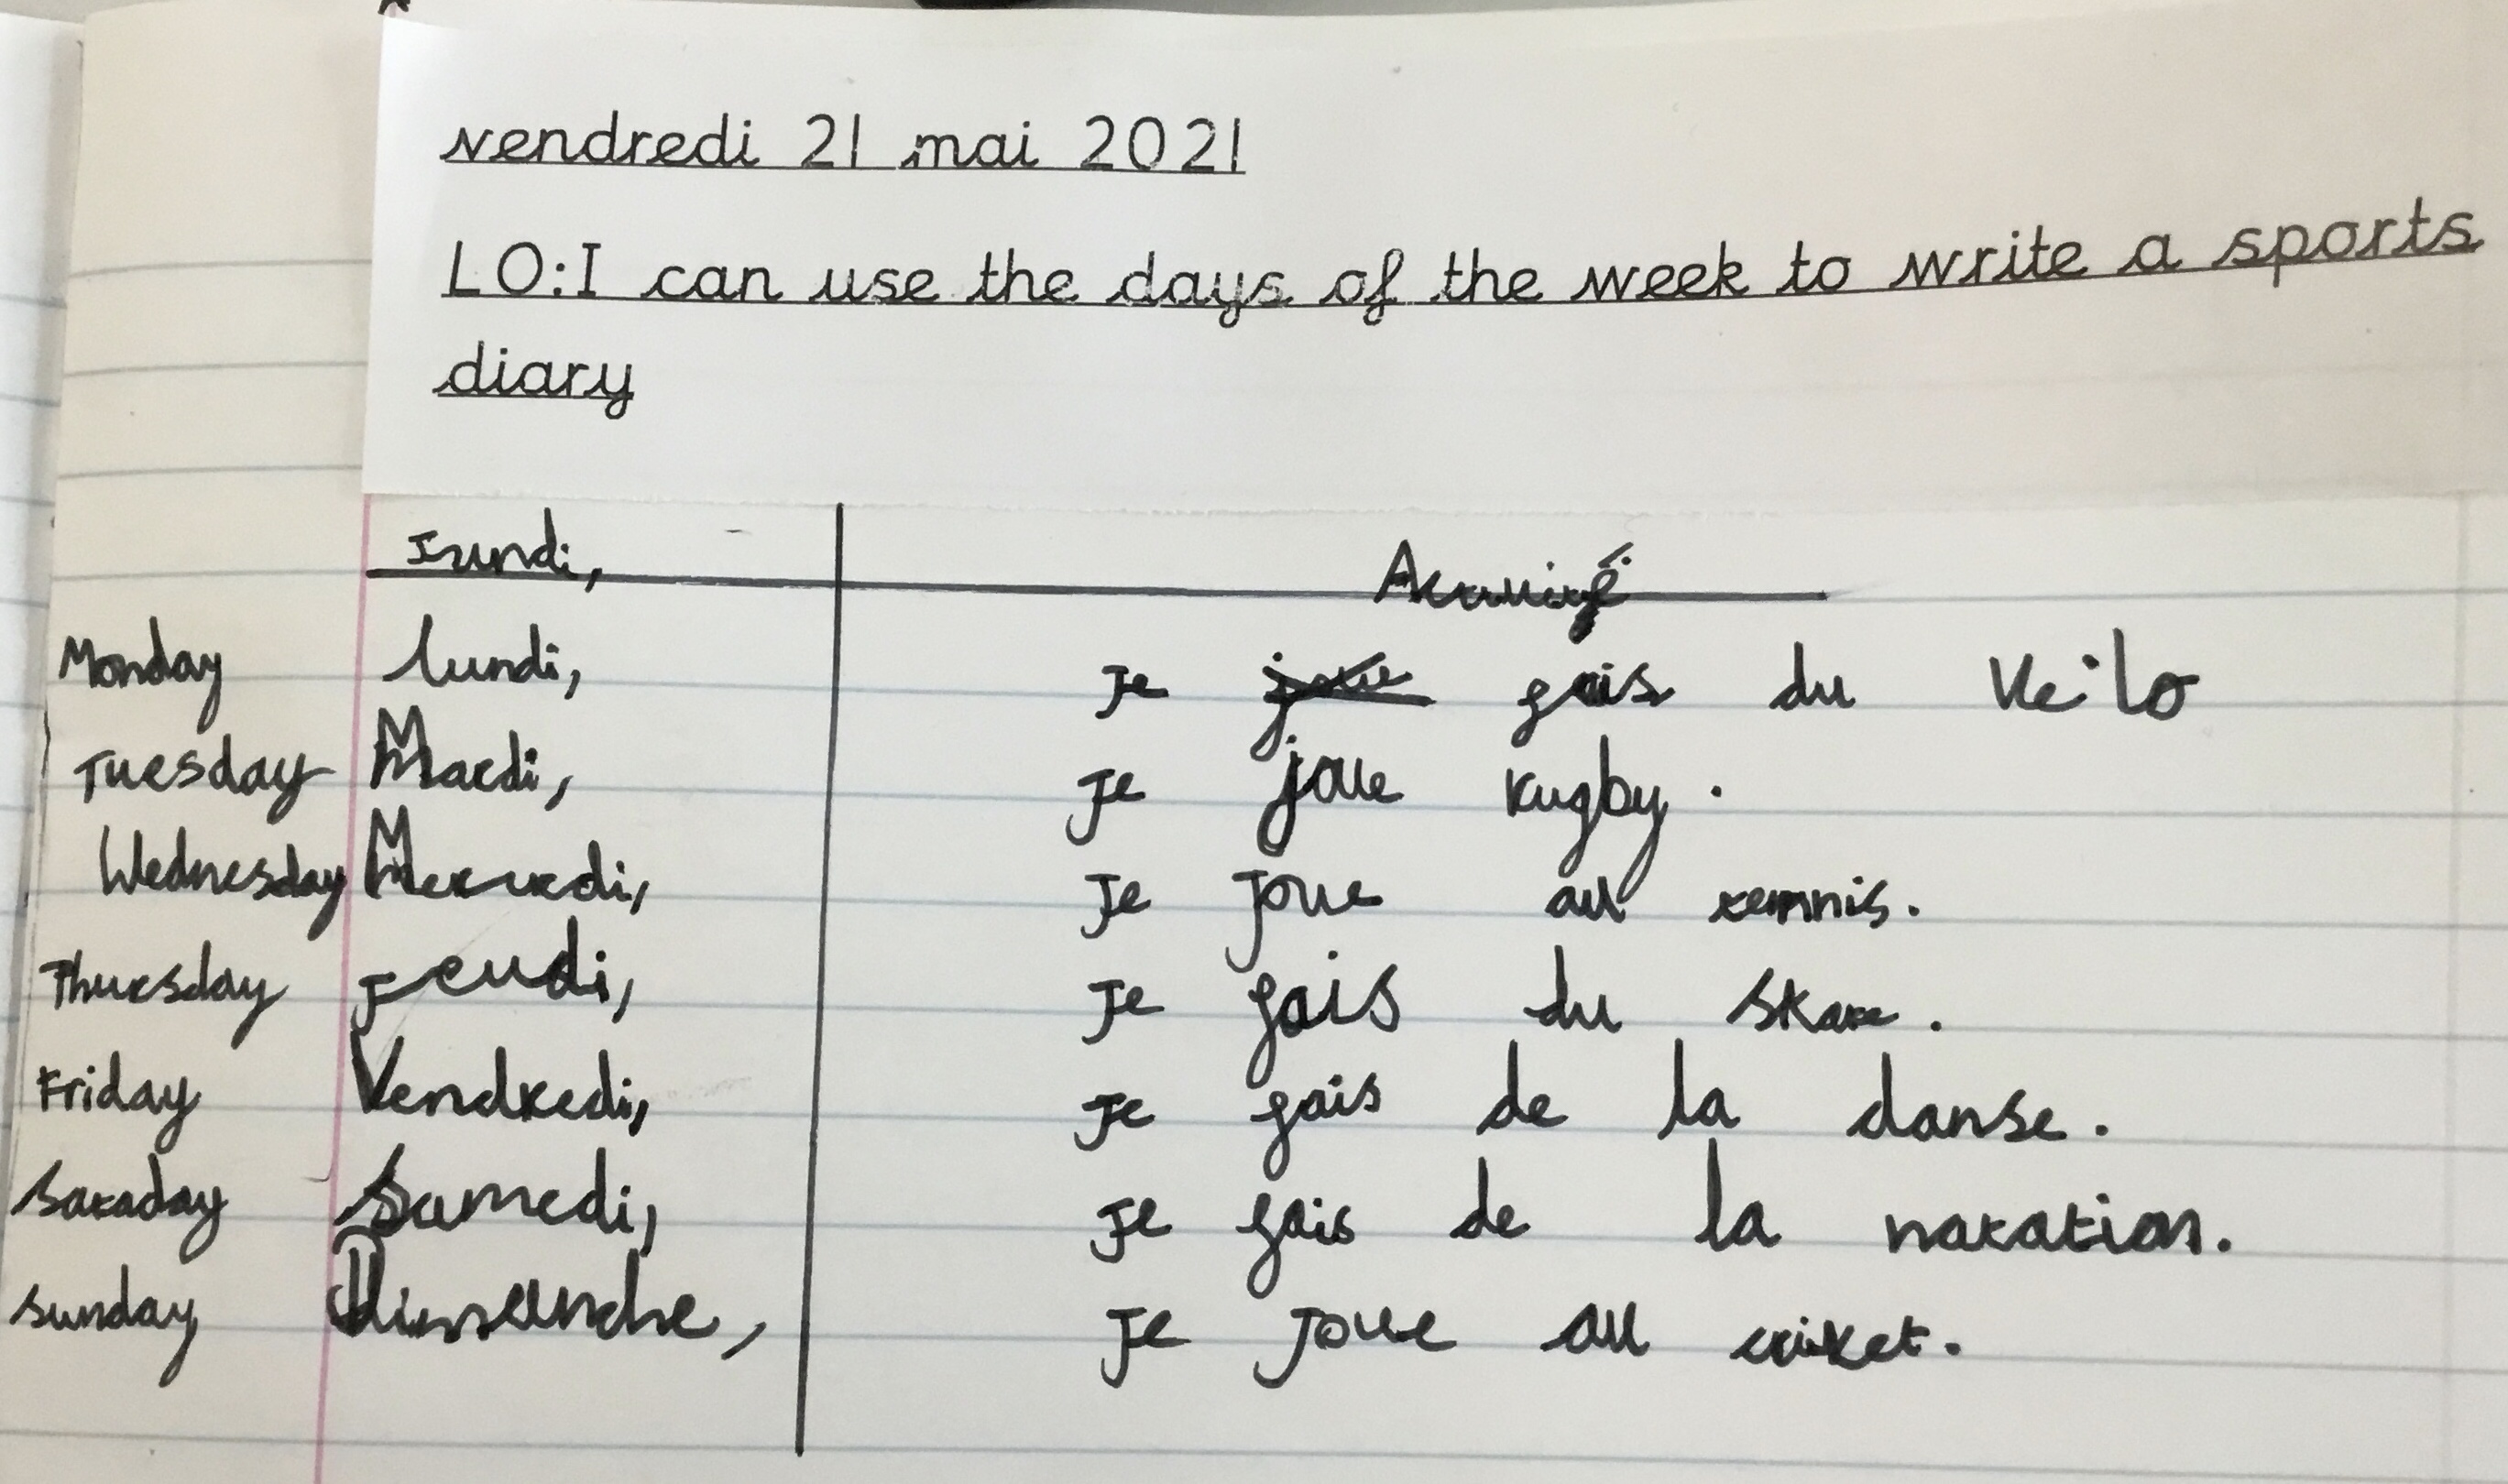 vendredi 21 mai 2021
LO:I can use the days of the week to write a sports
diary
lundi, Activité
Monday lundi, Je joue fais du vélo
Tuesday Mardi, Je joue rugby.
Wednesday Mercredi, Je joue au tennis.
Thursday Jeudi, Je fais du skate.
Friday Vendredi, Je fais de la danse.
Sataday Samedi, Je fais de la natation.
Sunday Dimanche, Je joue au criket.